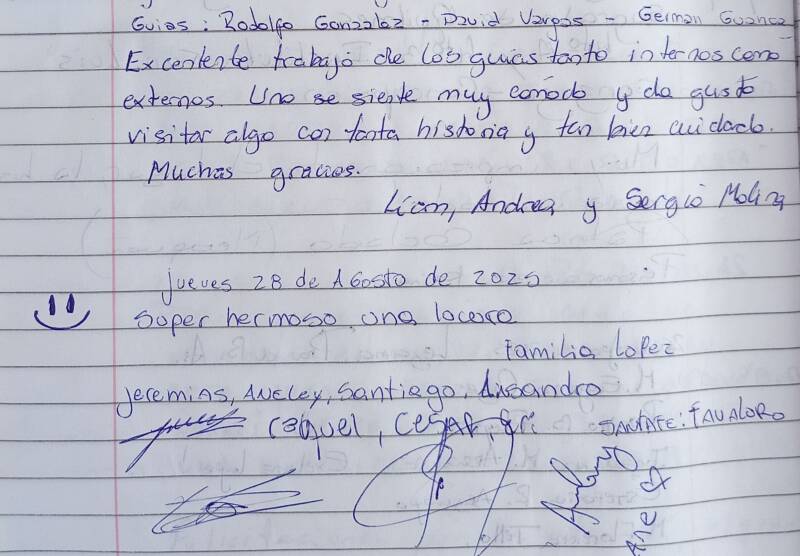 Guias: Rodolfo Gonzalez - David Vargas - German Guanca
Excentente trabajo de los guias tanto internos como
externos. Uno se siente muy comodo y da gusto
visitar algo con tanta historia y tan bien cuidado.
Muchas gracias.
Liam, Andrea y Sergio Molina
jueves 28 de Agosto de 2025
super hermoso una locura
Familia Lopez
jeremias, Ancley, Santiago, Lisandro
Raquel, Cesar,
SANTAFE: FAVALORO